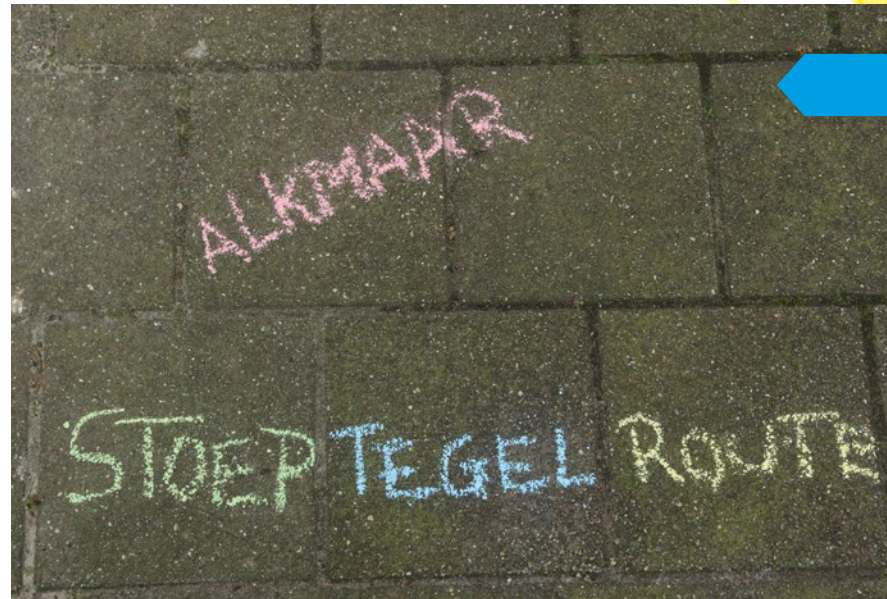 ALKMAAR
STOEP TEGEL ROUTE